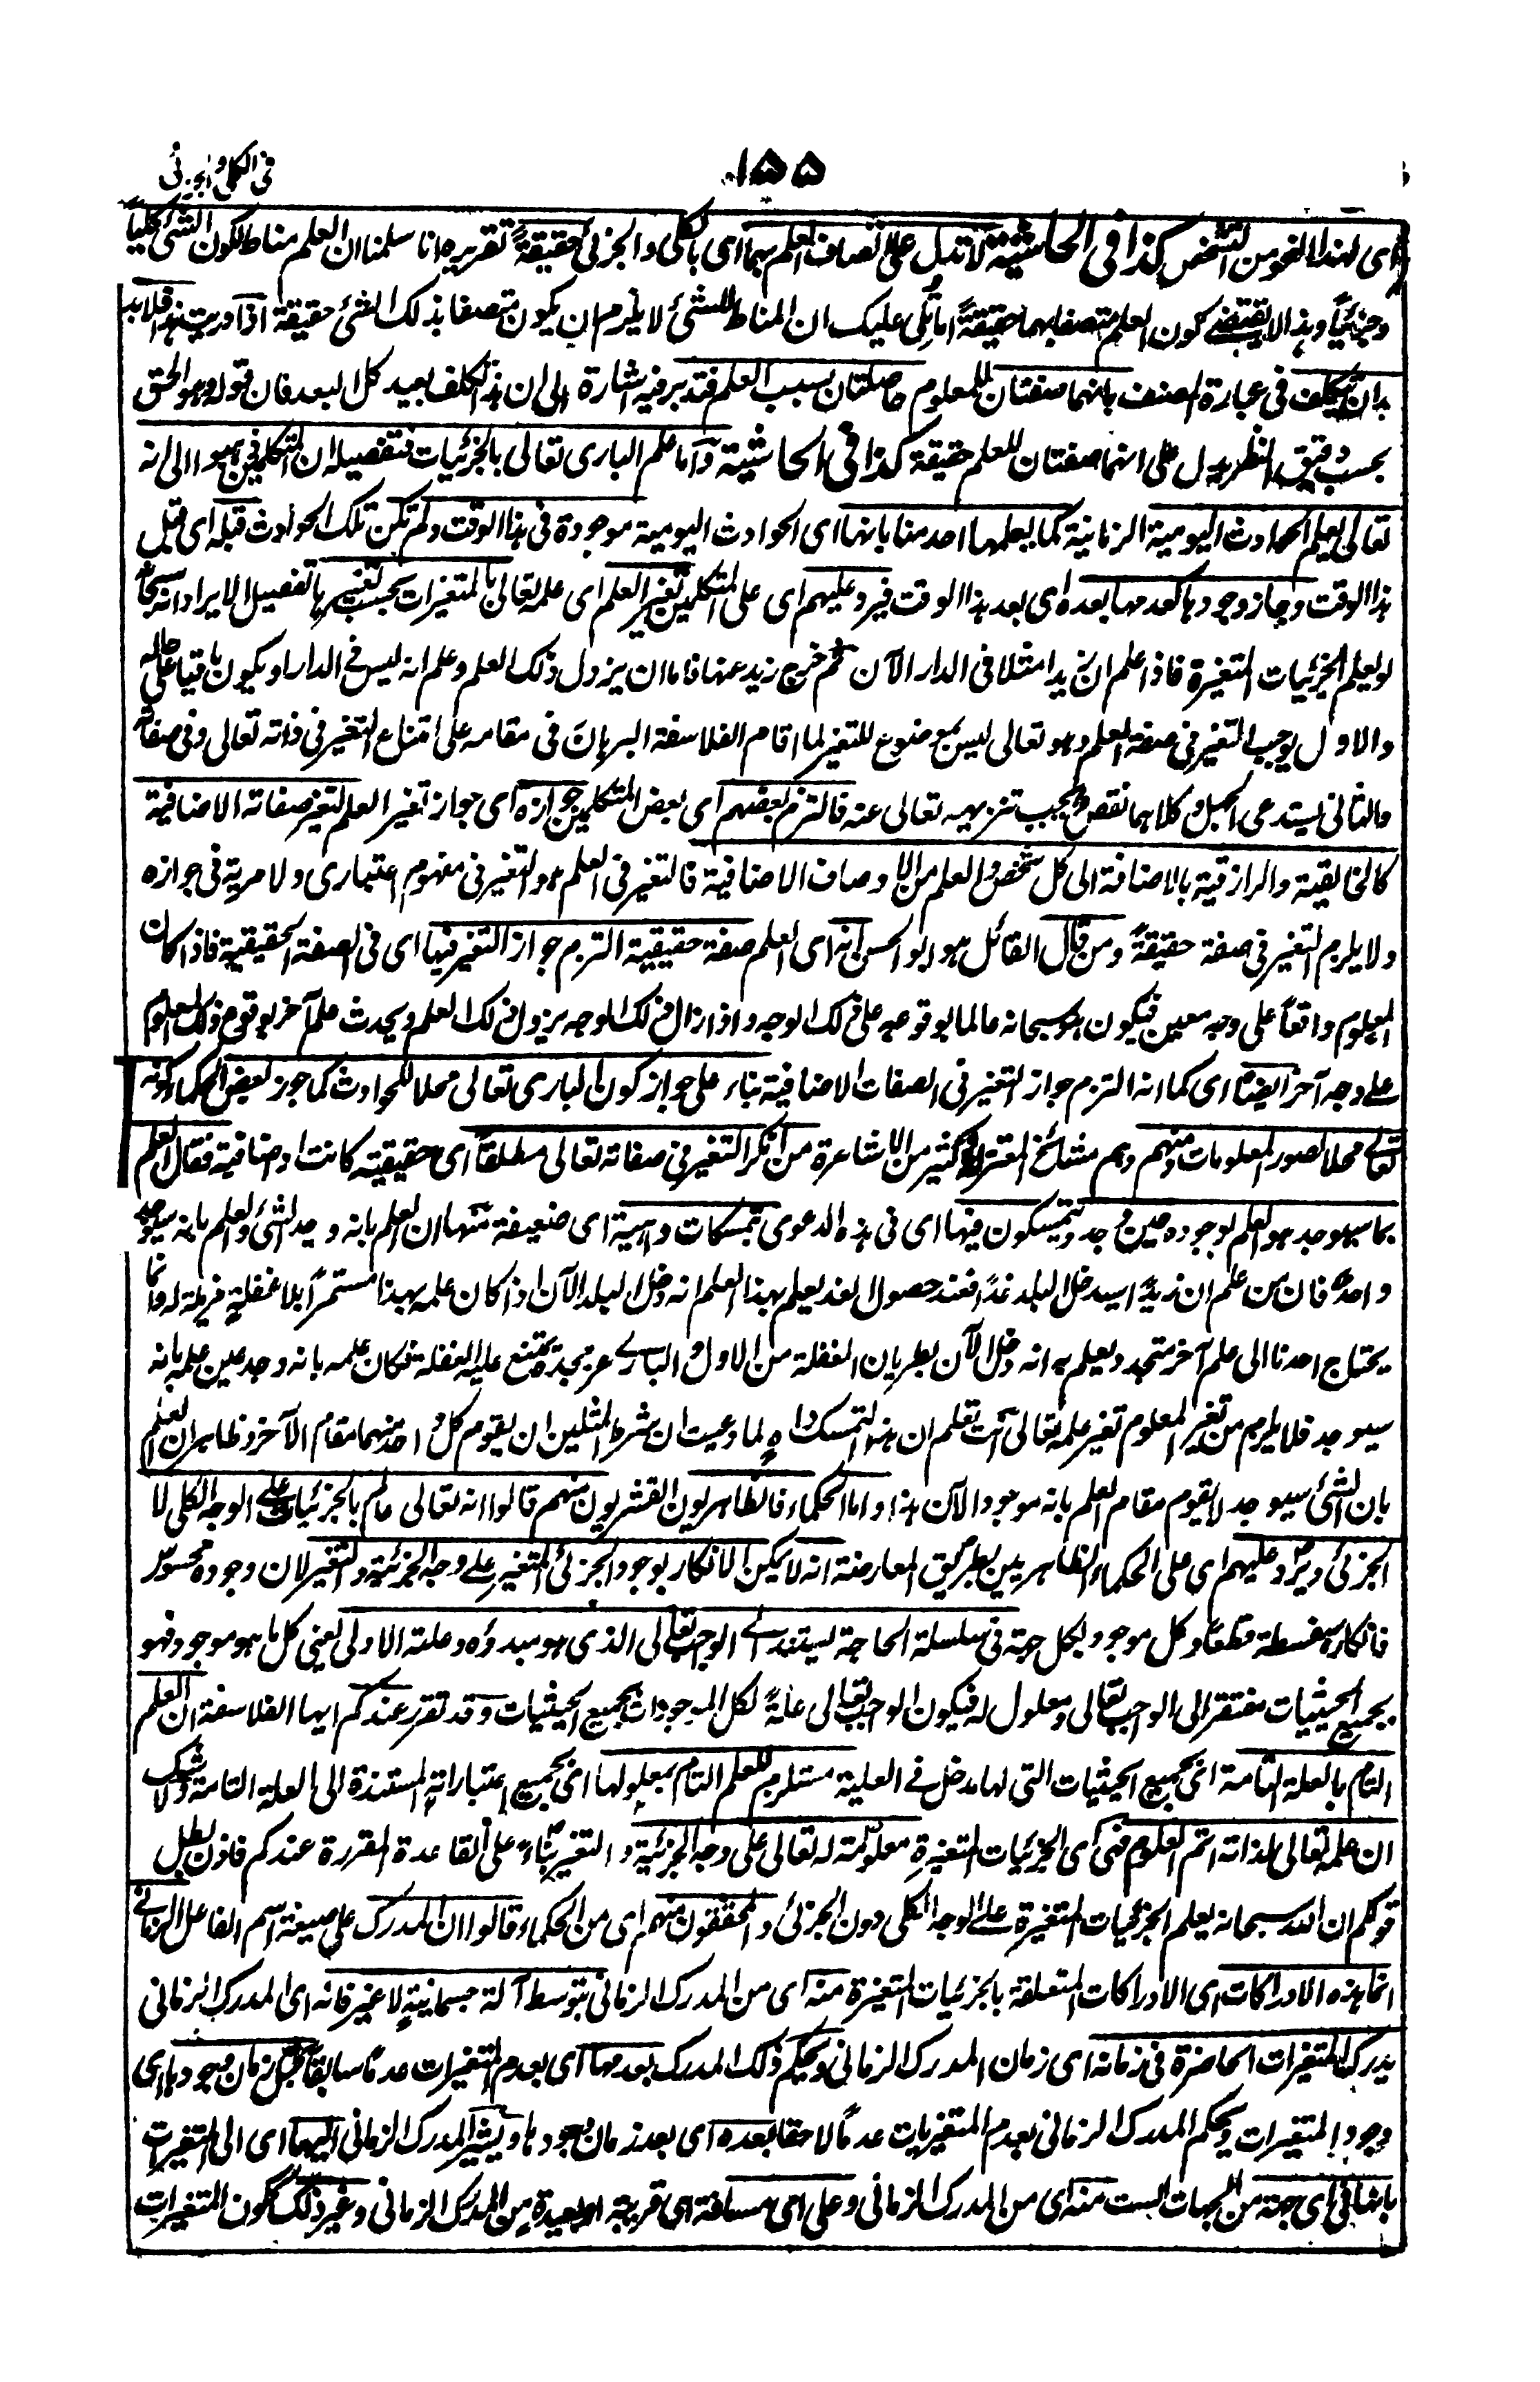 ١٥٥
فى الكلى والجزئى
اى لهذا النحو من التشخص كذا فى الحاشية لا تدل على اتصاف العلم بهما اى بالكلى والجزئى حقيقةً تقريره انا سلمنا ان العلم مناط لكون الشئ كلياً
وجزئياً وهذا لا يقتضے كون العلم متصفا بهما حقيقةً اما تُلى عليك ان المناط للشئ لا يلزم ان يكون متصفا بذلك الشئ حقيقة اذا دريت هذا فلا بد
بد ان يتكلف فى عبارة المصنف بانهما صفتان للمعلوم حاصلتان بسبب العلم فتدبر فيه اشارة الى ان هذا التكلف بعيد كل البعد فان قوله وهو الحق
بحسب دقيق النظر يدل على انهما صفتان للعلم حقيقة كذا فى الحاشية وآما علم البارى تعالى بالجزئيات فتفصيله ان المتكلمين ذهبوا الى انه
تعالى يعلم الحوادث اليومية الزمانية كما يعلمها احد منا بانها اى الحوادث اليومية موجودة فى هذا الوقت ولم تكن تلك الحوادث قبله اى قبل
هذا الوقت وجاز وجودها كعدمها بعده اى بعد هذا الوقت فيرد عليهم اى على المتكلمين تغير العلم اى علمه تعالى بالمتغيرات بحسب تغيرها تفصيل الايراد انه سبحانه
لو يعلم الجزئيات المتغيرة فاذا علم ان زيدا مثلا فى الدار الآن ثم خرج زيد عنها فاما ان يزول ذلك العلم وعلم انه ليس فے الدار او يكون باقيا على حاله
والاول يوجب التغير فى صفة العلم وهو تعالى ليس بموضوع للتغير لما اقام الفلاسفة البرهان فى مقامه على امتناع التغير فى ذاته تعالى وفى صفاته
والثانى يستدعى الجهل وكلاهما نقص يجب تنزيهه تعالى عنه فالتزم بعضهم اى بعض المتكلمين جوازه اى جواز تغير العلم لتغير صفاته الاضافية
كالخالقية والرازقية بالاضافة الى كل شخص والعلم من الاوصاف الاضافية فالتغير فى العلم هو التغير فى مفهوم اعتبارى ولا مرية فى جوازه
ولا يلزم التغير فى صفة حقيقةً ومن قال القائل هو ابو الحسن انه اى العلم صفة حقيقية التزم جواز التغير فيها اى فى الصفة الحقيقية فاذا كان
المعلوم واقعاً على وجه معين فيكون هو سبحانه عالما بوقوعه على ذلك الوجه واذا زال ذلك الوجه يزول ذلك العلم ويحدث علم آخر بوقوع ذلك المعلوم
علے وجه آخر ايضاً اى كما انه التزم جواز التغير فى الصفات الاضافية بناء على جواز كون البارى تعالى محلا للحوادث كما جوز بعض الحكماء كونه
تعالے محلا لصور المعلومات ومنهم وهم مشائخ المعتزلة وكثير من الاشاعرة من انكر التغير فى صفاته تعالى مطلقاً اى حقيقية كانت او اضافية فقال العلم
بما سيوجد هو العلم بوجوده حين وجد ويتمسكون فيها اى فى هذه الدعوى بتمسكات واهية اى ضعيفة منها ان العلم بانه وجد الشئ والعلم بانه سيوجد
واحدٌ فان من علم ان زيداً سيدخل البلد غداً فعند حصول الغد يعلم بهذا العلم انه دخل البلد الآن اذا كان علمه بهذا مستمراً بلا غفلةٍ مزيلة له وانما
يحتاج احدنا الى علم آخر متجدد يعلم به انه دخل الآن بطريان الغفلة من الاول والبارے عز مجده يمتنع عليه الغفلة فكان علمه بانه وجد عين علمه بانه
سيوجد فلا يلزم من تغير المعلوم تغير علمه تعالى آنت تعلم ان هذا التمسك واهٍ لما وعيت ان شرط المثلين ان يقوم كل واحد منهما مقام الآخر وظاهر ان العلم
بان الشئ سيوجد لا يقوم مقام العلم بانه موجود الآن هذا واما الحكماء فالظاهريون القشريون منهم قالوا انه تعالى عالم بالجزئيات علے الوجه الكلى لا
الجزئى ويرد عليهم اى على الحكماء الظاهريين بطريق المعارضة انه لا يمكن الانكار بوجود الجزئى المتغير علے وجه الجزئية والتغير لان وجوده محسوس
فانكاره سفسطة قطعاً وكل موجود بكل جهة فى سلسلة الحاجة يستند الے الواجب تعالى الذى هو مبدؤه وعلته الاولى يعنى كل ما هو موجود فهو
بجميع الحيثيات مفتقر الى الواجب تعالى ومعلول له فيكون الواجب تعالى علةً لكل الموجودات بجميع الحيثيات وقد تقرر عندكم ايها الفلاسفة ان العلم
التام بالعلة التامة اى بجميع الحيثيات التى لها مدخل فے العلية مستلزم للعلم التام بمعلولها اى بجميع اعتباراته المستندة الى العلة التامة ولا شك
ان علمه تعالى لذاته اتم العلوم فهى اى الجزئيات المتغيرة معلومة له تعالى على وجه الجزئية والتغير بناءً على القاعدة المقررة عندكم فاذن بطل
قولكم ان الله سبحانه يعلم الجزئيات المتغيرة علے الوجه الكلى دون الجزئى والمحققون منهم اى من الحكماء قالوا ان المدرك على صيغة اسم الفاعل الزمانى
انما هذه الادراكات اى الادراكات المتعلقة بالجزئيات المتغيرة منه اى من المدرك الزمانى بتوسط آلة جسمانيةٍ لا غير فانه اى المدرك الزمانى
يدرك المتغيرات الحاضرة فى زمانه اى زمان المدرك الزمانى ويحكم ذلك المدرك بعدمها اى بعدم المتغيرات عدمًا سابقاً قبل زمان وجودها اى
وجود المتغيرات ويحكم المدرك الزمانى بعدم المتغيرات عدمًا لاحقا بعده اى بعد زمان وجودها ويشير المدرك الزمانى اليها اى الى المتغيرات
بانها فى اى جهة من الجهات الست منه اى من المدرك الزمانى وعلى اى مسافة اى قريبة او بعيدة من المدرك الزمانى وغير ذلك لكون المتغيرات